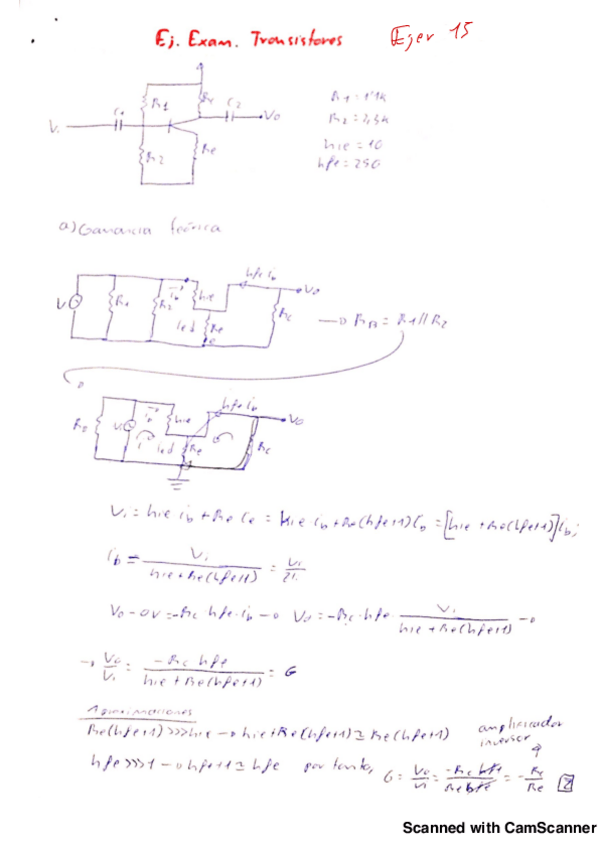 Ej. Exam. Transistores Ejer 15
R1
Rc
C1
C2
Vo
Vi
R2
Re
R1 = 1'1k
R2 = 3,3k
hie = 10
hfe = 250
a) Ganancia teórica
hfe ib
Vo
ib
hie
R1
R2
Re
Rc
RB = R1 // R2
hfe ib
Vo
ib
hie
Re
Rc
Vi = hie ib + Re ie = hie ib + Re(hfe+1) ib = [hie + Re(hfe+1)] ib;
ib = Vi / hie + Re(hfe+1) = Vi / Zi
Vo - 0V = -Rc · hfe · ib → Vo = -Rc · hfe · Vi / hie + Re(hfe+1) →
→ Vo / Vi = -Rc hfe / hie + Re(hfe+1) = G
Aproximaciones
Re(hfe+1) >>> hie → hie + Re(hfe+1) ≃ Re(hfe+1)
amplificador
inversor
hfe >>> 1 → hfe+1 ≃ hfe por tanto, G = Vo / Vi = -Rc hfe / Re hfe = -Rc / Re 2
Scanned with CamScanner